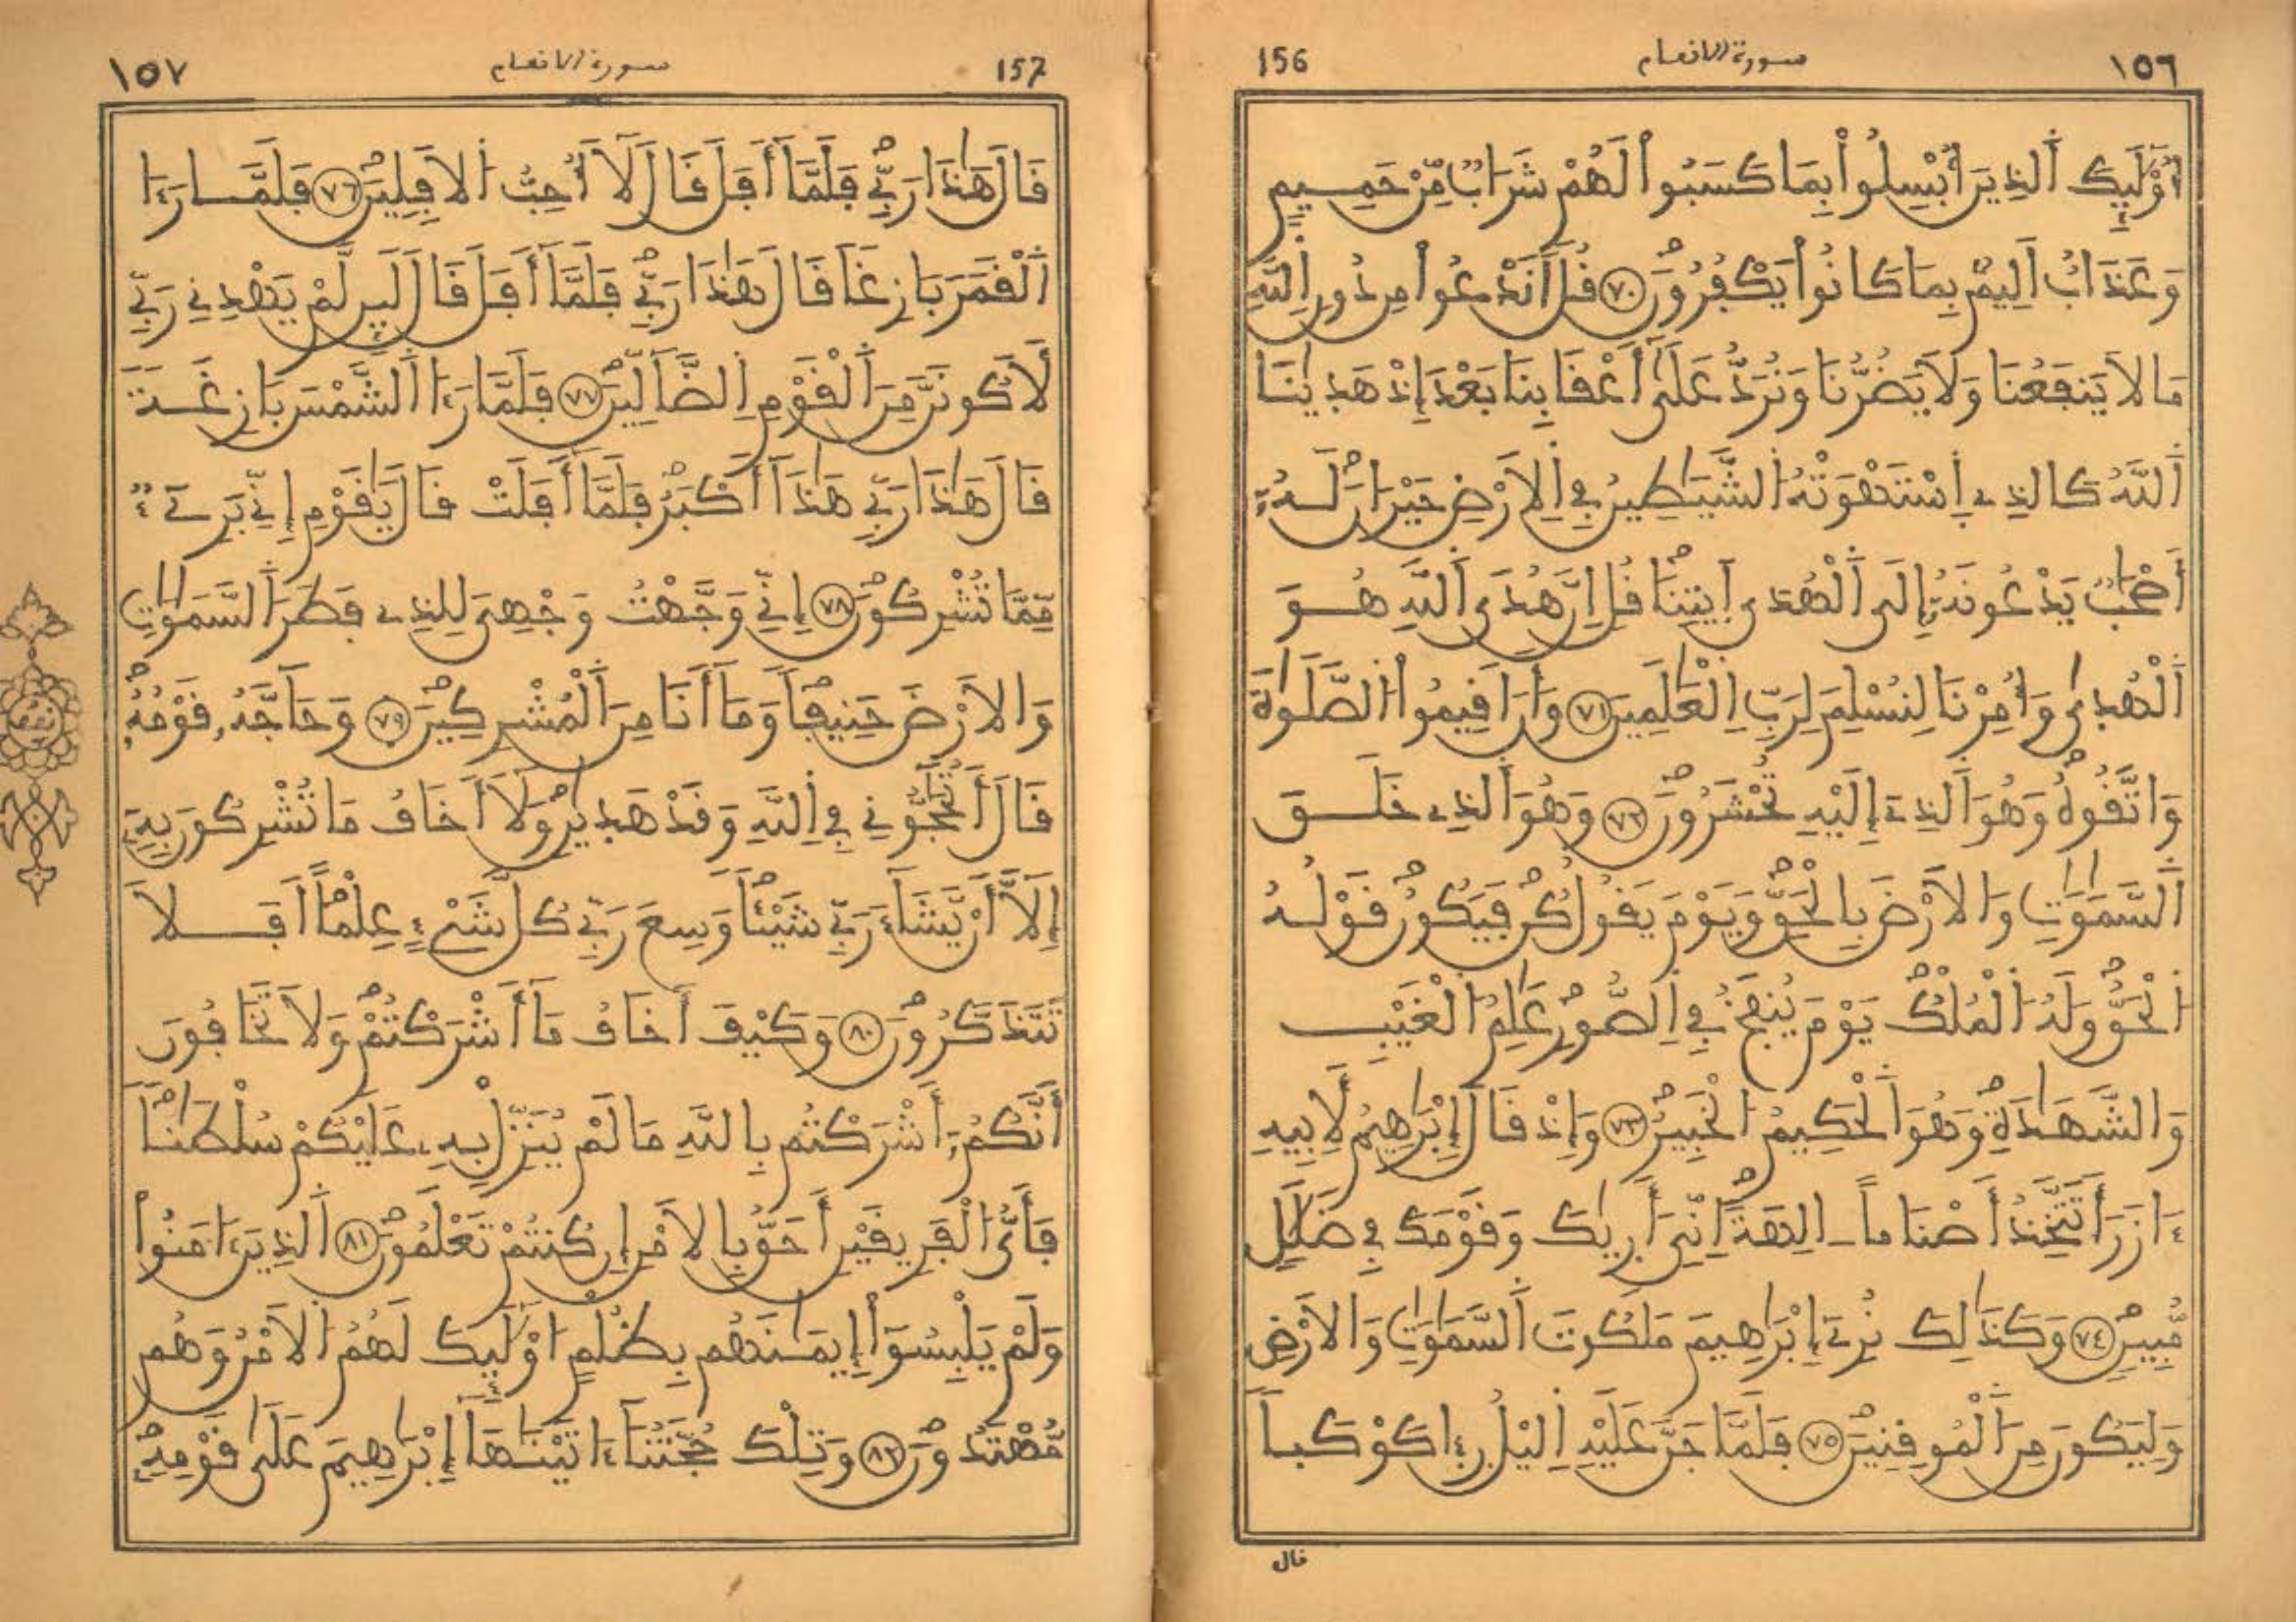 ١٥٦
سورة الانعام
156
أُوْلَٰٓئِكَ اَ۬لذِينَ أُبْسِلُواْ بِمَا كَسَبُواْ لَهُمْ شَرَابٌ مِّنْ حَمِيمٍ
وَعَذَابٌ اَلِيمٌۢ بِمَا كَانُواْ يَكْفُرُونَۖ ٧٠ قُلَ اَنَدْعُواْ مِن دُونِ اِ۬للَّهِ
مَا لَا يَنفَعُنَا وَلَا يَضُرُّنَا وَنُرَدُّ عَلَىٰٓ أَعْقَابِنَا بَعْدَ إِذْ هَدَىٰنَا
اَ۬للَّهُ كَالذِے اِ۪سْتَهْوَتْهُ اُ۬لشَّيَٰطِينُ فِے اِ۬لَارْضِ حَيْرَانَۖ لَهُۥٓ
أَصْحَٰبٌ يَدْعُونَهُۥٓ إِلَى اَ۬لْهُدَى اَ۪يتِنَاۖ قُلِ اِنَّ هُدَى اَ۬للَّهِ هُوَ
اَ۬لْهُدَىٰ وَأُمِرْنَا لِنُسْلِمَ لِرَبِّ اِ۬لْعَٰلَمِينَ ٧١ وَأَنَ اَقِيمُواْ اُ۬لصَّلَوٰةَ
وَاتَّقُوهُۖ وَهُوَ اَ۬لذِےٓ إِلَيْهِ تُحْشَرُونَۖ ٧٢ وَهُوَ اَ۬لذِے خَلَقَ
اَ۬لسَّمَٰوَٰتِ وَالَارْضَ بِالْحَقِّۖ وَيَوْمَ يَقُولُ كُن فَيَكُونُۖ قَوْلُهُ
اُ۬لْحَقُّۖ وَلَهُ اُ۬لْمُلْكُۖ يَوْمَ يُنفَخُ فِے اِ۬لصُّورِۖ عَٰلِمُ اُ۬لْغَيْبِ
وَالشَّهَٰدَةِۖ وَهُوَ اَ۬لْحَكِيمُ اُ۬لْخَبِيرُۖ ٧٣ وَإِذْ قَالَ إِبْرَٰهِيمُ لِأَبِيهِ
ءَازَرَ أَتَتَّخِذُ أَصْنَاماً ـالِهَةًۖ اِنِّيَ أَرَىٰكَ وَقَوْمَكَ فِے ضَلَٰلٍ
مُّبِينٍۖ ٧٤ وَكَذَٰلِكَ نُرِےٓ إِبْرَٰهِيمَ مَلَكُوتَ اَ۬لسَّمَٰوَٰتِ وَالَارْضِ
وَلِيَكُونَ مِنَ اَ۬لْمُوقِنِينَۖ ٧٥ فَلَمَّا جَنَّ عَلَيْهِ اِ۬ليْلُ رَءٖا كَوْكَباً
قال
157
سورة الانعام
١٥٧
قَالَ هَٰذَا رَبِّےۖ فَلَمَّآ أَفَلَ قَالَ لَآ أُحِبُّ اُ۬لَافِلِينَۖ ٧٦ فَلَمَّا رَءَا
اَ۬لْقَمَرَ بَازِغاً قَالَ هَٰذَا رَبِّےۖ فَلَمَّآ أَفَلَ قَالَ لَئِن لَّمْ يَهْدِنِے رَبِّے
لَأَكُونَنَّ مِنَ اَ۬لْقَوْمِ اِ۬لضَّآلِّينَۖ ٧٧ فَلَمَّا رَءَا اَ۬لشَّمْسَ بَازِغَةً
قَالَ هَٰذَا رَبِّے هَٰذَآ أَكْبَرُۖ فَلَمَّآ أَفَلَتْ قَالَ يَٰقَوْمِ إِنِّے بَرِےٓءٌ
مِّمَّا تُشْرِكُونَۖ ٧٨ إِنِّے وَجَّهْتُ وَجْهِيَ لِلذِے فَطَرَ اَ۬لسَّمَٰوَٰتِ
وَالَارْضَ حَنِيفاًۖ وَمَآ أَنَا مِنَ اَ۬لْمُشْرِكِينَۖ ٧٩ وَحَآجَّهُۥ قَوْمُهُۥۖ
قَالَ أَتُحَٰٓجُّونِے فِے اِ۬للَّهِ وَقَدْ هَدَىٰنِۖ وَلَآ أَخَافُ مَا تُشْرِكُونَ بِهِۦٓ
إِلَّآ أَنْ يَّشَآءَ رَبِّے شَيْـٔاًۖ وَسِعَ رَبِّے كُلَّ شَےْءٍ عِلْماًۖ اَفَلَا
تَتَذَكَّرُونَۖ ٨٠ وَكَيْفَ أَخَافُ مَآ أَشْرَكْتُمْۖ وَلَا تَخَافُونَ
أَنَّكُمُۥٓ أَشْرَكْتُم بِاللَّهِ مَا لَمْ يُنَزِّلْ بِهِۦ عَلَيْكُمْ سُلْطَٰناًۖ
فَأَيُّ اُ۬لْفَرِيقَيْنِ أَحَقُّ بِالَامْنِ إِن كُنتُمْ تَعْلَمُونَۖ ٨١ اَ۬لذِينَ ءَامَنُواْ
وَلَمْ يَلْبِسُوٓاْ إِيمَٰنَهُم بِظُلْمٍ اوْلَٰٓئِكَ لَهُمُ اُ۬لَامْنُ وَهُم
مُّهْتَدُونَۖ ٨٢ وَتِلْكَ حُجَّتُنَآ ءَاتَيْنَٰهَآ إِبْرَٰهِيمَ عَلَىٰ قَوْمِهِۦۖ